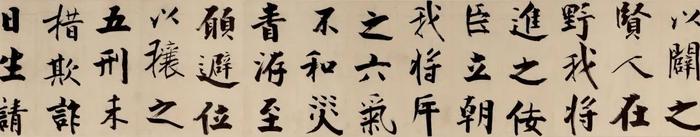 以闢之
賢人在
野我將
進之佞
臣立朝
我將斥
之六氣
不和災
眚洊至
願避位
以禳之
五刑未
措欺詐
日生請